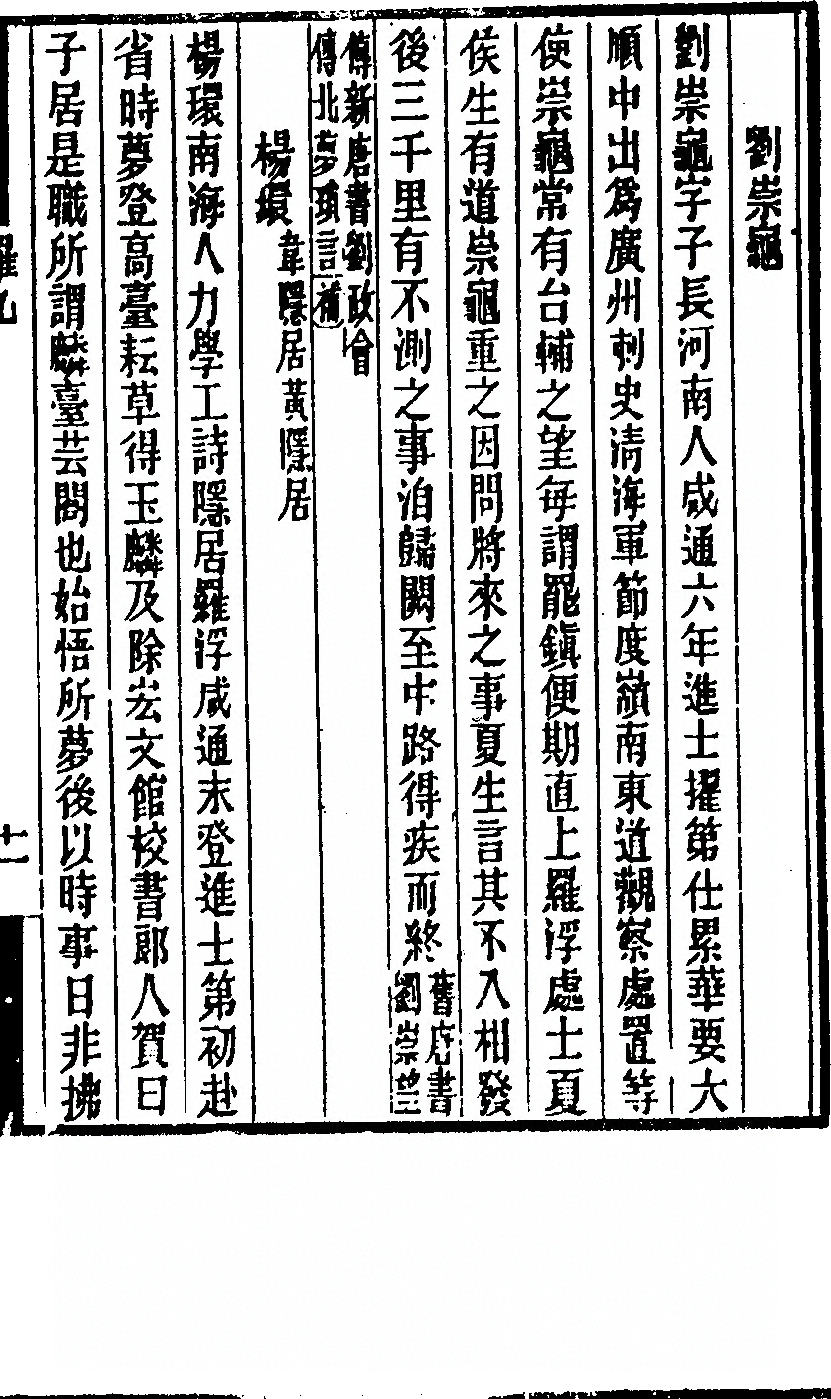 劉崇龜
劉崇龜字子長河南人咸通六年進士擢第仕累華要大
順中出爲廣州刺史清海軍節度嶺南東道觀察處置等
使崇龜常有台輔之望每謂罷鎮便期直上羅浮處士夏
侯生有道崇龜重之因問將來之事夏生言其不入相發
後三千里有不測之事洎歸闕至中路得疾而終
舊唐書
劉崇望
傳新唐書劉政會
傳北夢瑣言補
楊環
韋隱居黃隱居
楊環南海人力學工詩隱居羅浮咸通末登進士第初赴
省時夢登高臺耘草得玉麟及除宏文館校書郎人賀曰
子居是職所謂麟臺芸閣也始悟所夢後以時事日非拂
十一